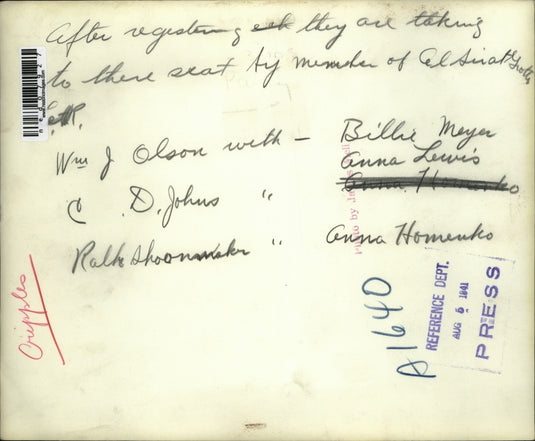 After regestering eeh they are taking
to there seat by member of El Sirat Grotto
L to R,
Wm J Olson with - Billie Meyer
Anna Lewis
Anna Homenko
C. D. Johns "
Ralh Shoonmaker " Anna Homenko
Cripples
Photo by
A1640
REFERENCE DEPT.
AUG 5 1941
PRESS